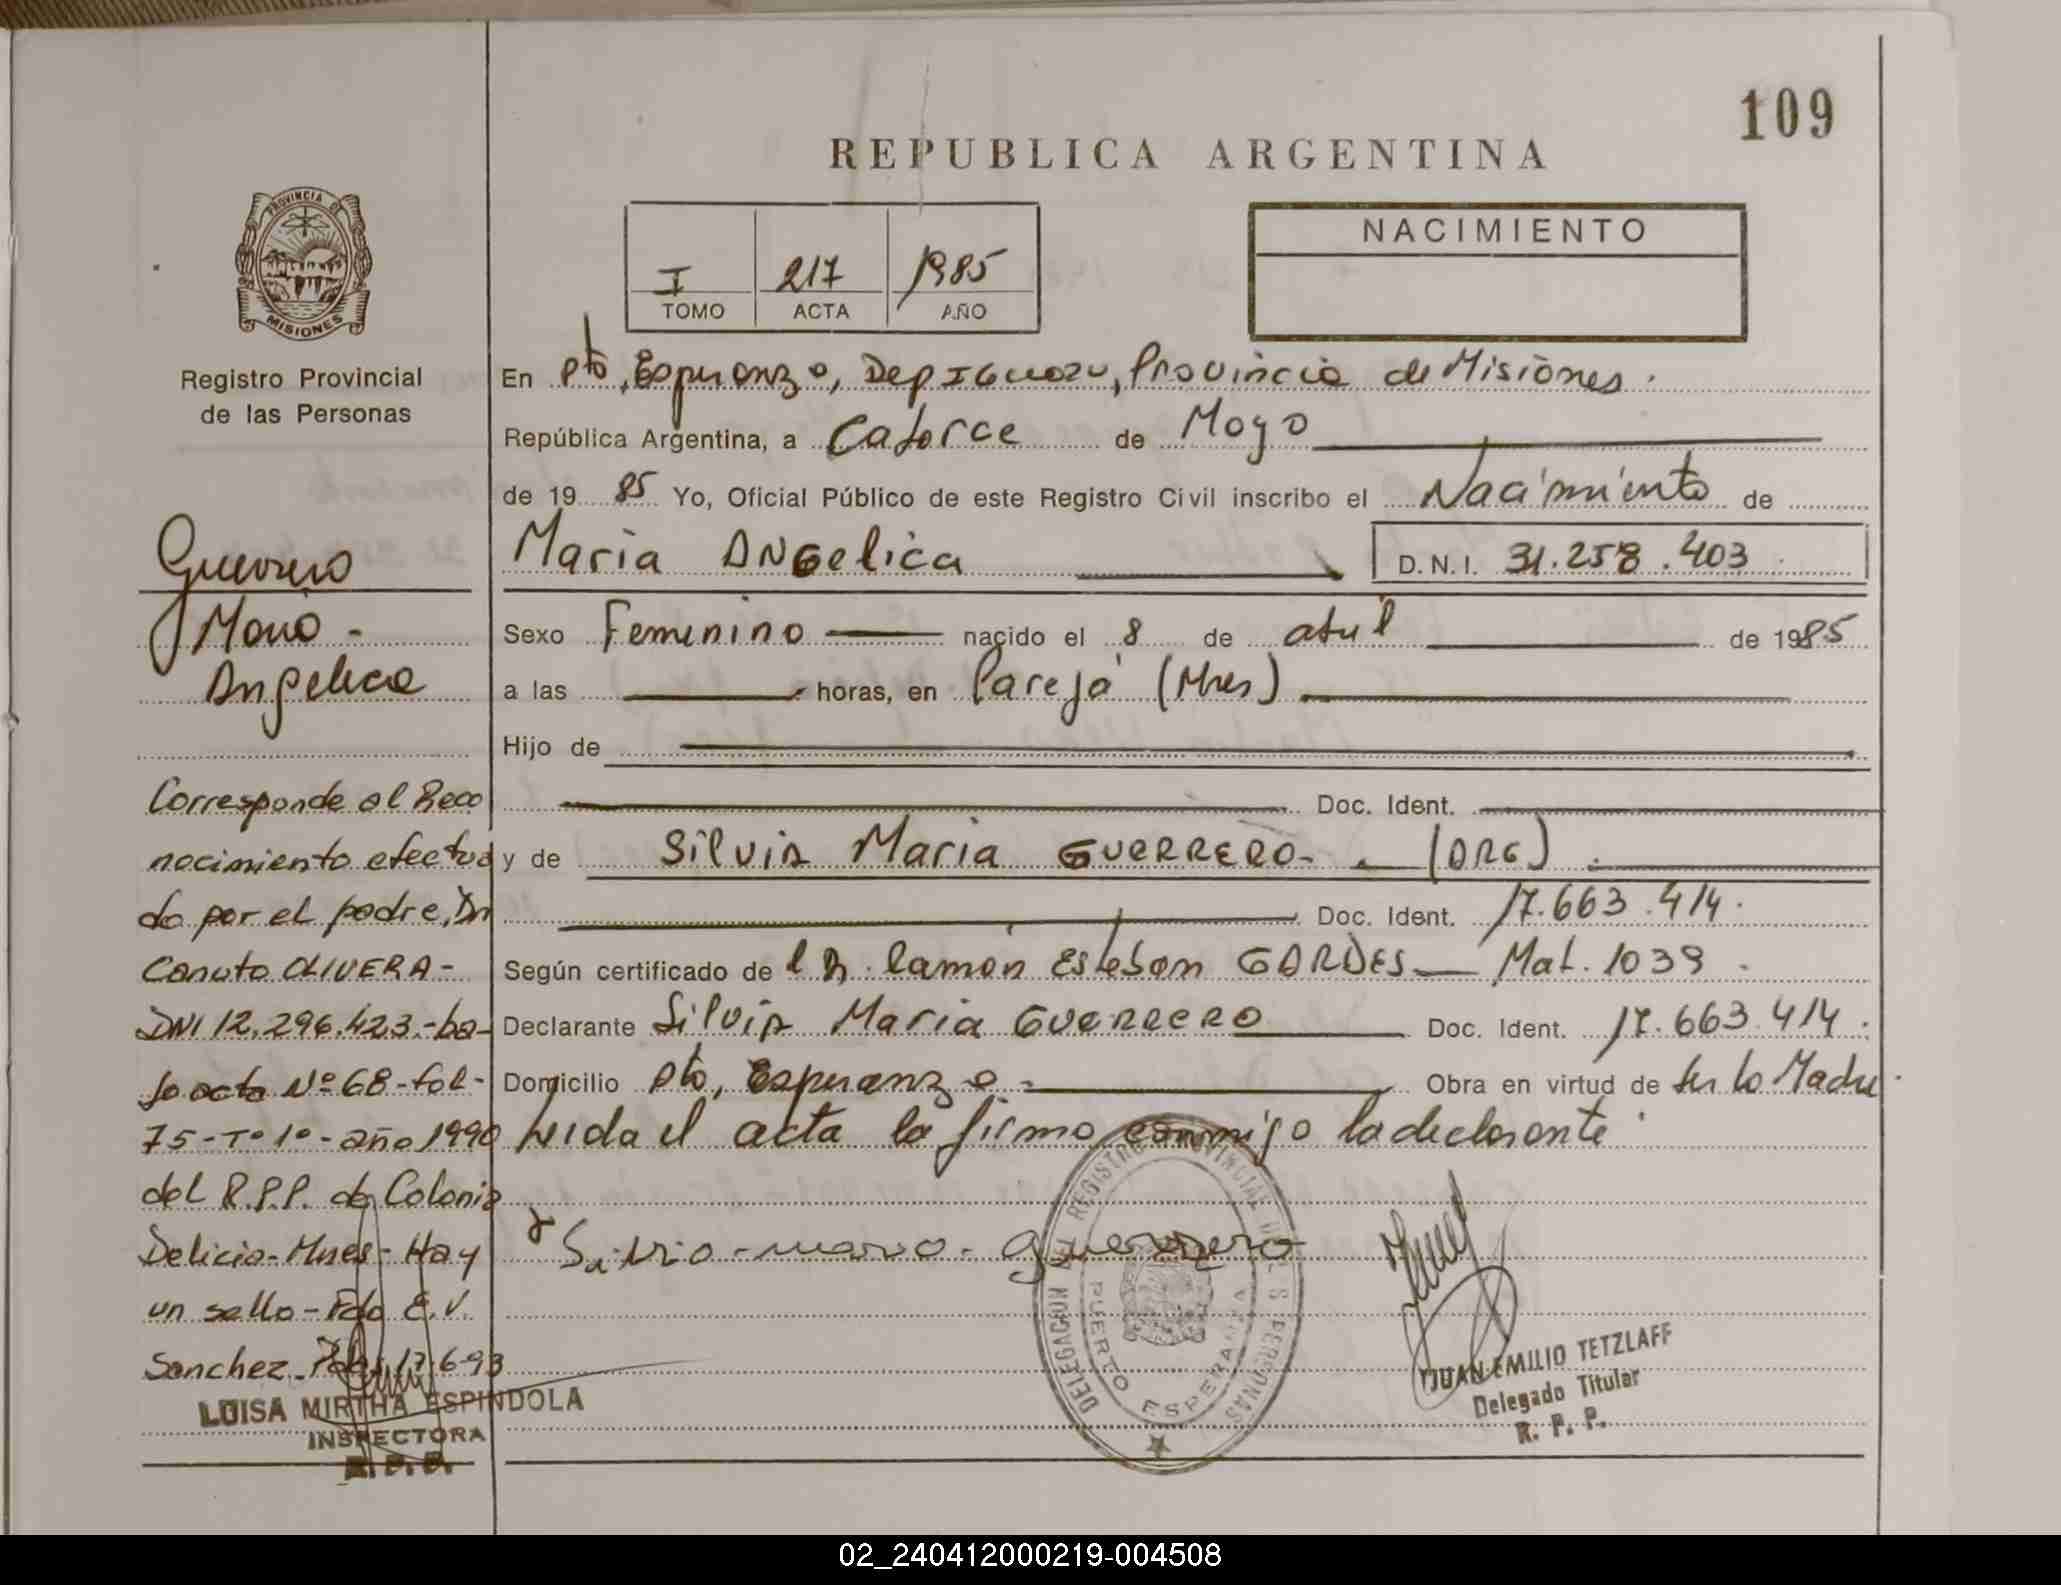 109
REPUBLICA ARGENTINA
PROVINCIA DE
MISIONES
Registro Provincial
de las Personas
I 217 1985
TOMO ACTA AÑO
NACIMIENTO
En Pto. Esperanza, Dep Iguazu, Provincia de Misiones.
República Argentina, a Catorce de Mayo
de 1985 Yo, Oficial Público de este Registro Civil inscribo el Nacimiento de
Maria Angelica D.N.I. 31.258.403
Sexo Femenino nacido el 8 de abril de 1985
a las horas, en Parejá (Mnes)
Hijo de
Doc. Ident.
y de Silvia Maria GUERRERO. (ARG)
Doc. Ident. 17.663.414.
Según certificado de l Dr. Ramón Esteban GARDES Mat. 1039.
Declarante Silvia Maria GUERRERO Doc. Ident. 17.663.414.
Domicilio Pto, Esperanza Obra en virtud de ser la Madre.
Leida el acta la firma conmigo la declarante.
Guerrero
Maria -
Angelica
Corresponde al Reco
nocimiento efectua
do por el padre, Dn
Canuto OLIVERA -
DNI 12.296.423.-ba-
jo acta Nº 68-fol-
75-Tº1º-año 1990
del R.P.P. de Colonia
Delicia-Mnes-Hay
un sello-Fdo E.V.
Sanchez. Pdas, 17-6-93
LUISA MIRTHA ESPINDOLA
INSPECTORA
R.P.P.
Silvia-maria-guerrero
DELEGACION DEL REGISTRO PROVINCIAL DE LAS PERSONAS
PUERTO ESPERANZA
JUAN EMILIO TETZLAFF
Delegado Titular
R. P. P.
02_240412000219-004508